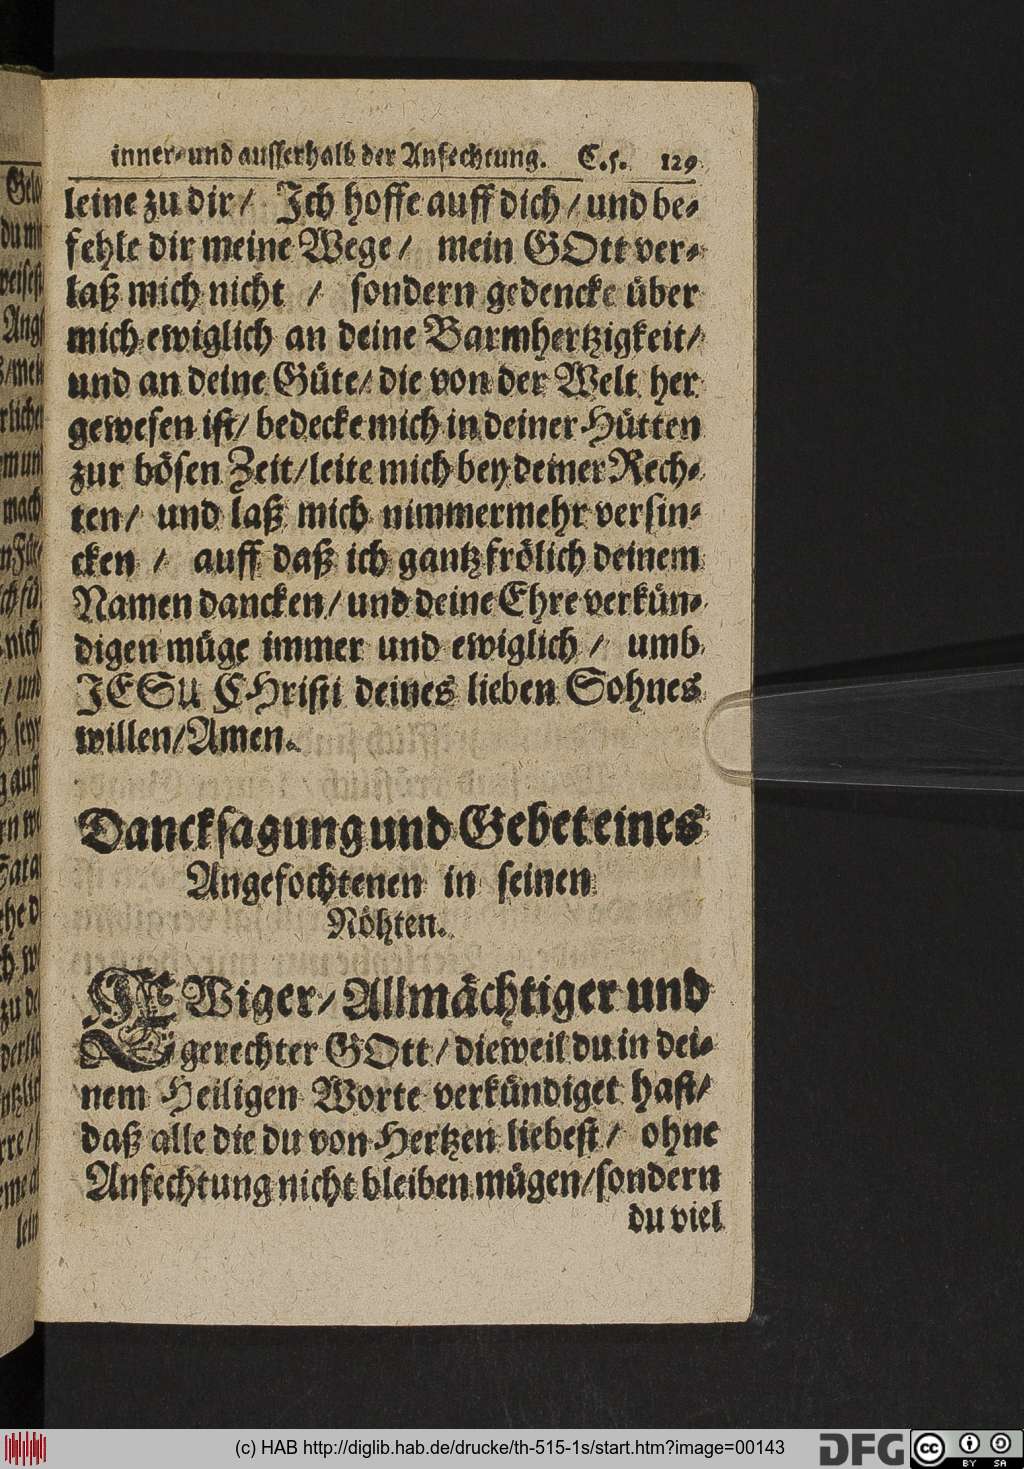 inner- und ausserhalb der Anfechtung. C.5. 129
leine zu dir / Jch hoffe auff dich / und be-
fehle dir meine Wege / mein GOtt ver-
laß mich nicht / sondern gedencke über
mich ewiglich an deine Barmhertzigkeit /
und an deine Güte / die von der Welt her
gewesen ist / bedecke mich in deiner Hütten
zur bösen Zeit / leite mich bey deiner Rech-
ten / und laß mich nimmermehr versin-
cken / auff daß ich gantz frölich deinem
Namen dancken / und deine Ehre verkün-
digen müge immer und ewiglich / umb
JESU CHristi deines lieben Sohnes
willen / Amen.
Dancksagung und Gebet eines
Angefochtenen in seinen
Nöhten.
EWiger / Allmächtiger und
gerechter GOtt / dieweil du in dei-
nem Heiligen Worte verkündiget hast /
daß alle die du von Hertzen liebest / ohne
Anfechtung nicht bleiben mügen / sondern
du viel
(c) HAB http://diglib.hab.de/drucke/th-515-1s/start.htm?image=00143
DFG
cc BY SA